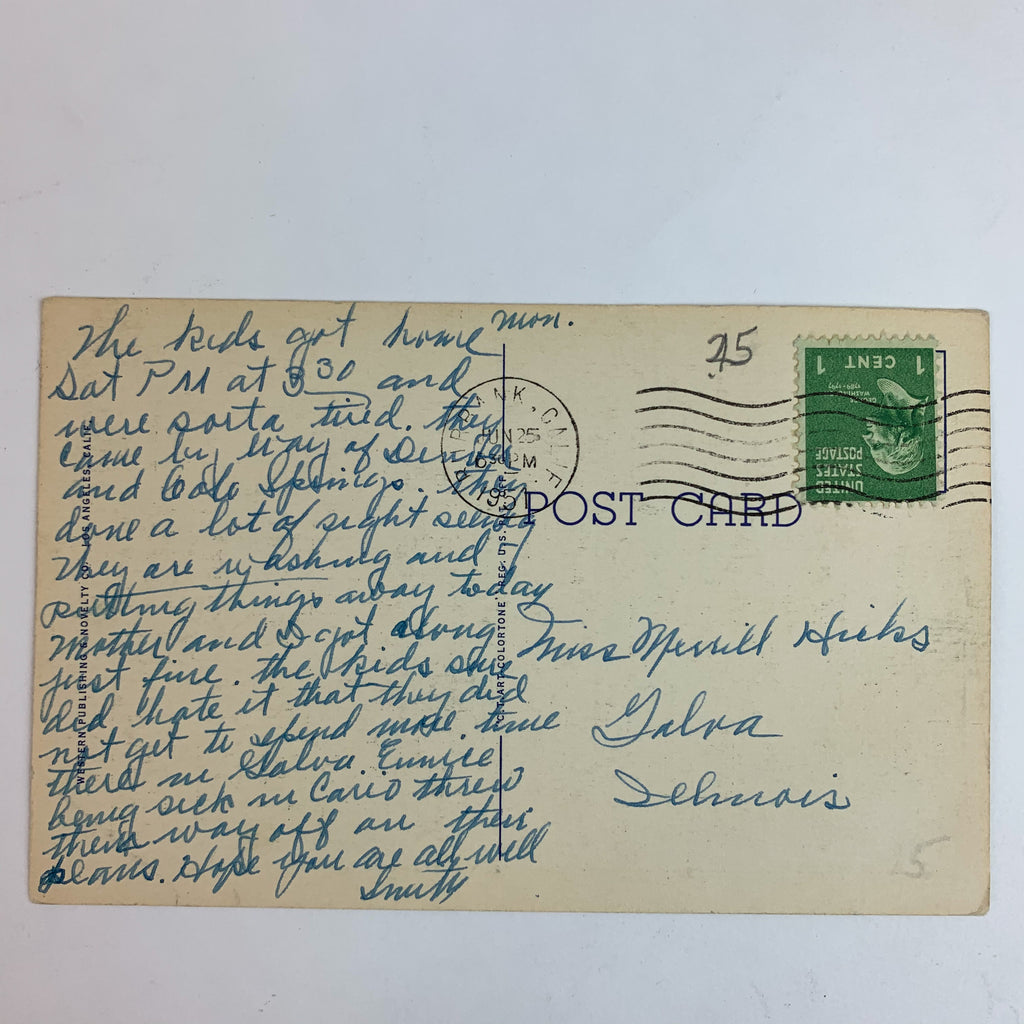 Mon.
The kids got home
Sat PM at 3 30 and
were sorta tired. they
came by way of Denver
and Colo Springs. They
done a lot of sight seeing
They are washing and
putting things away today
Mother and I got along
just fine. the kids sure
did hate it that they did
not get to spend more time
there in Galva. Eunice
being sick in Cario threw
them way off on their
plans. Hope you are all well
Smith
POST CARD
Miss Merrill Hicks
Galva
Illinois
BANK, CALIF.
JUN 25
PM
195
1 CENT 1
GEORGE WASHINGTON
1789-1797
UNITED
STATES
POSTAGE
25
5
WESTERN PUBLISHING & NOVELTY CO., LOS ANGELES, CALIF.
"C.T. ART-COLORTONE" REG. U.S. PAT. OFF.